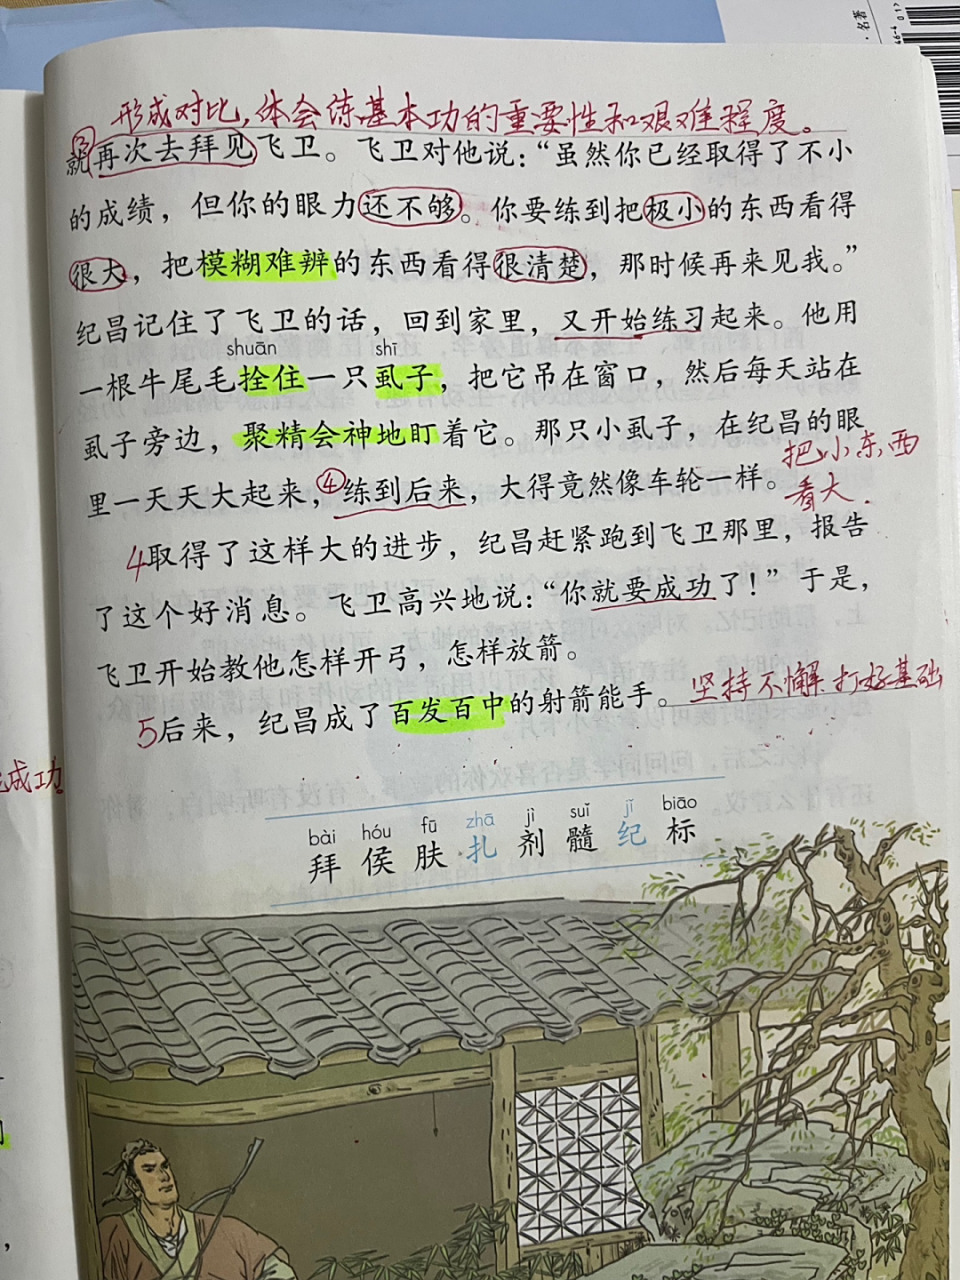 名著
形成对比,体会练基本功的重要性和艰难程度。
③
就再次去拜见飞卫。飞卫对他说：“虽然你已经取得了不小
的成绩，但你的眼力还不够。你要练到把极小的东西看得
很大，把模糊难辨的东西看得很清楚，那时候再来见我。”
纪昌记住了飞卫的话，回到家里，又开始练习起来。他用
shuān shī
一根牛尾毛拴住一只虱子，把它吊在窗口，然后每天站在
虱子旁边，聚精会神地盯着它。那只小虱子，在纪昌的眼
里一天天大起来，④练到后来，大得竟然像车轮一样。
把小东西
看大.
4取得了这样大的进步，纪昌赶紧跑到飞卫那里，报告
了这个好消息。飞卫高兴地说：“你就要成功了！”于是，
飞卫开始教他怎样开弓，怎样放箭。
5后来，纪昌成了百发百中的射箭能手。坚持不懈 打好基础
成功
bài hóu fū zhā jì suǐ jǐ biāo
拜 侯 肤 扎 剂 髓 纪 标